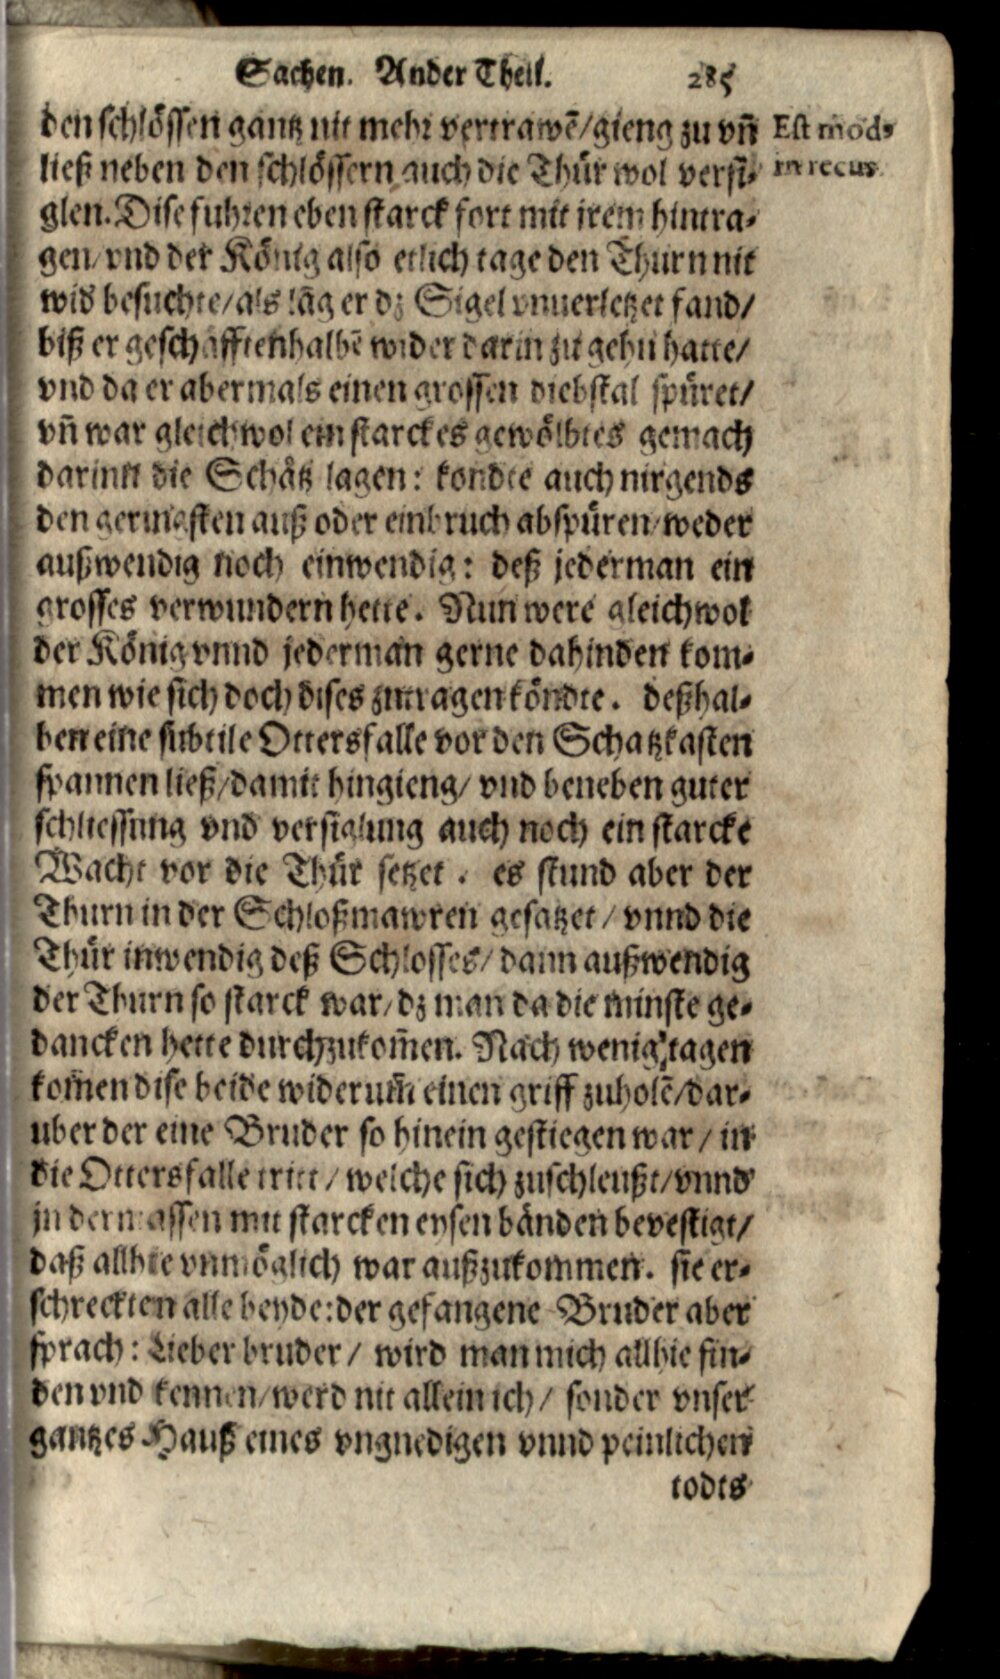 Sachen. Ander Theil. 285
den schlössen gantz nit mehr vertrawē/gieng zu vn̄
ließ neben den schlössern auch die Thür wol versi-
glen. Dise fuhren eben starck fort mit irem hintra-
gen/vnd der König also etlich tage den Thurn nit
wid besuchte/als lāg er dz Sigel vnuerletzet fand/
biß er geschäfftenhalbē wider darin zu gehn hatte/
vnd da er abermals einen grossen diebstal spüret/
vn̄ war gleichwol ein starckes gewölbtes gemach
darinn die Schätz lagen: kondte auch nirgends
den geringsten auß oder einbruch abspüren/weder
außwendig noch einwendig: deß jederman ein
grosses verwundern hette. Nun were gleichwol
der König vnnd jederman gerne dahinden kom-
men wie sich doch dises zutragen köndte. deßhal-
ben eine subtile Ottersfalle vor den Schatzkasten
spannen ließ/damit hingieng/ vnd beneben guter
schliessung vnd versiglung auch noch ein starcke
Wacht vor die Thür setzet. es stund aber der
Thurn in der Schloßmawren gesatzet/ vnnd die
Thür inwendig deß Schlosses/ dann außwendig
der Thurn so starck war/dz man da die minste ge-
dancken hette durchzukom̄en. Nach wenig tagen
kom̄en dise beide widerum̄ einen griff zuholē/dar-
uber der eine Bruder so hinein gestiegen war/ in
die Ottersfalle tritt/ welche sich zuschleußt/vnnd
jn dermassen mit starcken eysen bänden bevestigt/
daß allhie vnmöglich war außzukommen. sie er-
schreckten alle beyde: der gefangene Bruder aber
sprach: Lieber bruder/ wird man mich allhie fin-
den vnd kennen/werd nit allein ich/ sonder vnser
gantzes Hauß eines vngnedigen vnnd peinlichen
todts
Est mod9
in recus.